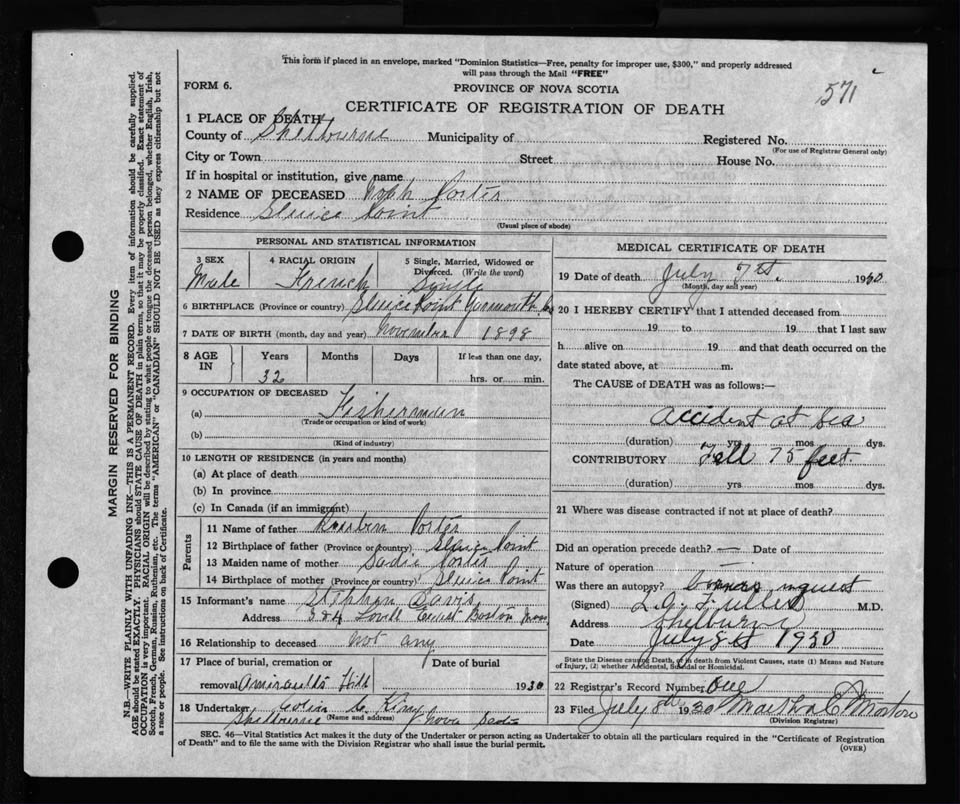 This form if placed in an envelope, marked "Dominion Statistics—Free, penalty for improper use, $300," and properly addressed
will pass through the Mail "FREE"
571
FORM 6.
PROVINCE OF NOVA SCOTIA
CERTIFICATE OF REGISTRATION OF DEATH
1 PLACE OF DEATH
County of Shelburne Municipality of Registered No.
(For use of Registrar General only)
City or Town Street House No.
If in hospital or institution, give name
2 NAME OF DECEASED Noah Porter
Residence Sluice Point
(Usual place of abode)
PERSONAL AND STATISTICAL INFORMATION
3 SEX 4 RACIAL ORIGIN 5 Single, Married, Widowed or
Divorced. (Write the word)
Male French Single
6 BIRTHPLACE (Province or country) Sluice Point Yarmouth Co
7 DATE OF BIRTH (month, day and year) November 1898
8 AGE IN Years Months Days If less than one day,
32 hrs. or min.
9 OCCUPATION OF DECEASED
(a) Fisherman
(Trade or occupation or kind of work)
(b)
(Kind of industry)
10 LENGTH OF RESIDENCE (in years and months)
(a) At place of death
(b) In province
(c) In Canada (if an immigrant)
Parents
11 Name of father Porter
12 Birthplace of father (Province or country) Sluice Point
13 Maiden name of mother Sadie Porter
14 Birthplace of mother (Province or country) Sluice Point
15 Informant's name Stephen Davis
Address 384 Boston Mass
16 Relationship to deceased not any
17 Place of burial, cremation or Date of burial
removal Amiraults Hill 1930
18 Undertaker Colin C. King
(Name and address)
Shelburne Nova Scotia
MEDICAL CERTIFICATE OF DEATH
19 Date of death July 7th. 1930
(Month, day and year)
20 I HEREBY CERTIFY that I attended deceased from
19 to 19 that I last saw
h alive on 19 and that death occurred on the
date stated above, at m.
The CAUSE of DEATH was as follows:—
Accident at Sea
(duration) yrs mos dys.
CONTRIBUTORY Fell 75 feet.
(duration) yrs mos dys.
21 Where was disease contracted if not at place of death?
Did an operation precede death? — Date of
Nature of operation
Was there an autopsy? inquest
(Signed) L.G. M.D.
Address Shelburne
Date July 8th 1930
State the Disease causing Death, or in death from Violent Causes, state (1) Means and Nature
of Injury, (2) whether Accidental, Suicidal or Homicidal.
22 Registrar's Record Number One
23 Filed July 8th 1930 Martha C Morton
(Division Registrar)
SEC. 46—Vital Statistics Act makes it the duty of the Undertaker or person acting as Undertaker to obtain all the particulars required in the "Certificate of Registration
of Death" and to file the same with the Division Registrar who shall issue the burial permit.
(OVER)
MARGIN RESERVED FOR BINDING
N.B.—WRITE PLAINLY WITH UNFADING INK—THIS IS A PERMANENT RECORD. Every item of information should be carefully supplied.
AGE should be stated EXACTLY. PHYSICIANS should STATE CAUSE OF DEATH in plain terms, so that it may be properly classified. Exact statement of
OCCUPATION is very important. RACIAL ORIGIN will be described by stating to what people or tongue the deceased person belonged, whether English, Irish,
Scotch, French, German, Russian, Ruthenian, etc. The terms "AMERICAN" or "CANADIAN" SHOULD NOT BE USED as they express citizenship but not
a race or people. See instructions on back of Certificate.